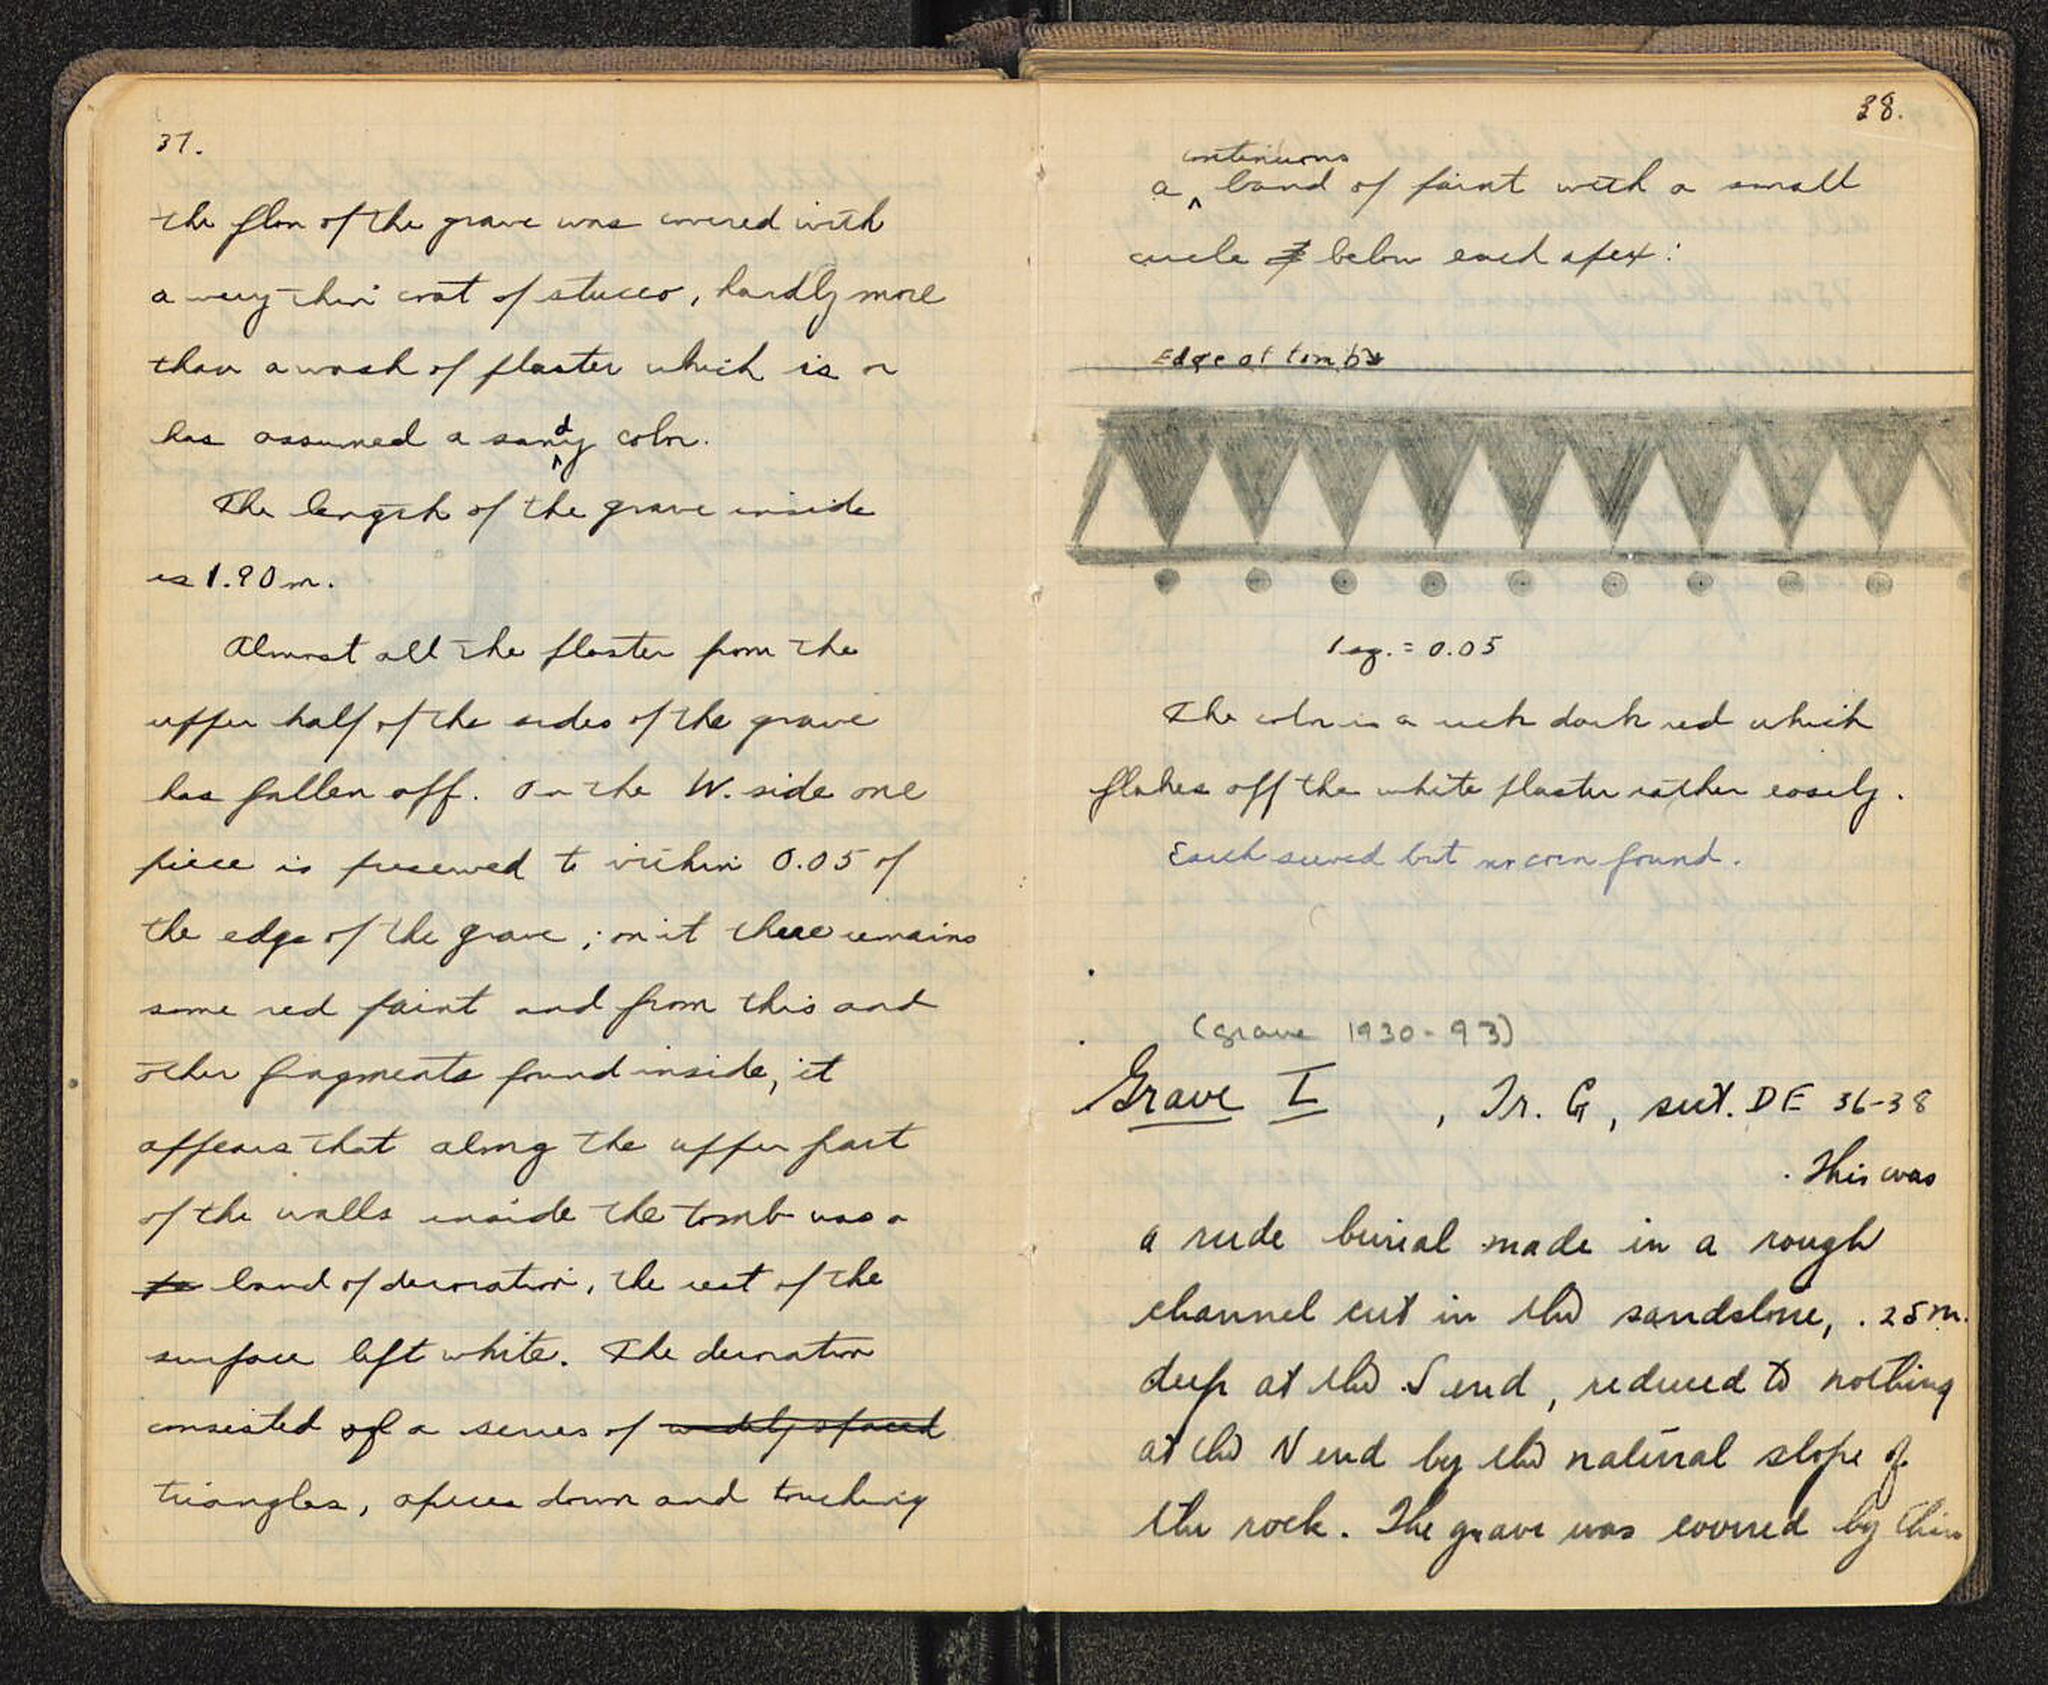 37.
the floor of the grave was covered with
a very thin coat of stucco, hardly more
than a wash of plaster which is or
has assumed a sandy color.
The length of the grave inside
is 1.90 m.
Almost all the plaster from the
upper half of the sides of the grave
has fallen off. On the W. side one
piece is preserved to within 0.05 of
the edge of the grave; on it there remains
some red paint and from this and
other fragments found inside, it
appears that along the upper part
of the walls inside the tomb was a
band of decoration, the rest of the
surface left white. The decoration
consisted of a series of widely spaced
triangles, apices down and touching
38.
continuous
a ^ band of paint with a small
circle below each apex:
Edge of tomb
1 sq. = 0.05
The color is a rich dark red which
flakes off the white plaster rather easily.
Earth sieved but no coin found.
(grave 1930-93)
Grave I , Tr. G, sect. DE 36-38
. This was
a rude burial made in a rough
channel cut in the sandstone, .25 m.
deep at the S end, reduced to nothing
at the N end by the natural slope of
the rock. The grave was covered by thin